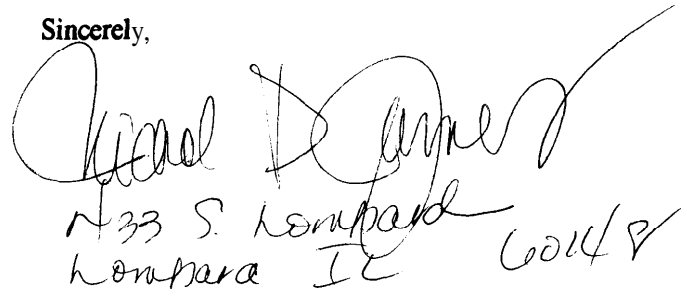 Sincerely,
Michael D
S. Lombard
Lombard IL 60148